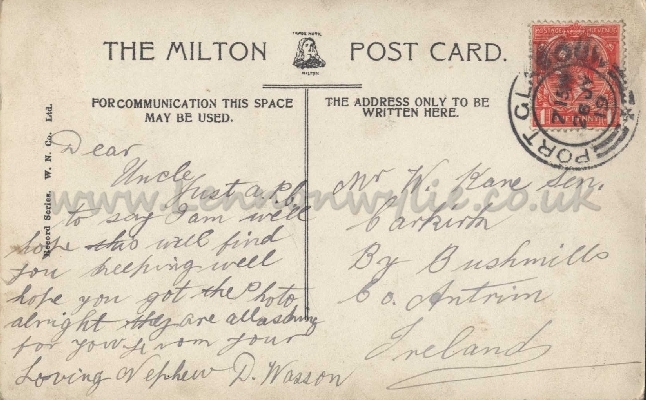 THE MILTON POST CARD.
TRADE MARK
MILTON
FOR COMMUNICATION THIS SPACE
MAY BE USED.
THE ADDRESS ONLY TO BE
WRITTEN HERE.
W. N. Co. Ltd.
Dear
Uncle
Just a P.C.
to say I am well
hope this will find
you keeping well
hope you got the Photo
alright they are all asking
for you from your
Loving Nephew D. Wasson
Mr W. Kane Sen.
Carkirth
By Bushmills
Co. Antrim
Ireland
PORT GLASGOW
www.Lennonwylie.co.uk